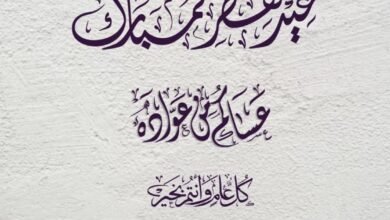 عيد فطر مبارك
عساكم من عواده
كل عام وأنتم بخير